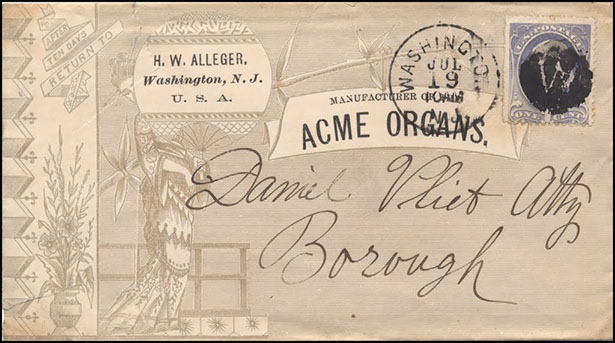 AFTER
TEN DAYS
RETURN TO
H. W. ALLEGER,
Washington, N. J.
U. S. A.
WASHINGTO
JUL
19
MANUFACTURER OF THE
ACME ORGANS.
U.S. POSTAGE
ONE CENT
Daniel Vliet Atty
Borough